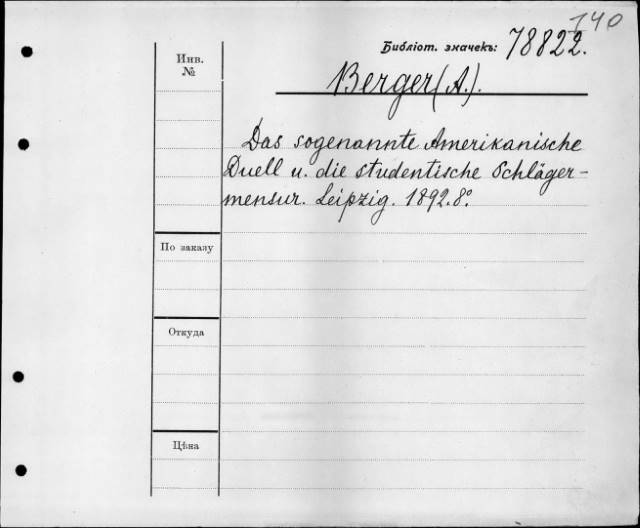 740
Библіот. значекъ: 78822.
Инв.
№
Berger (A.).
Das sogenannte Amerikanische
Duell u. die studentische Schläger-
mensur. Leipzig. 1892. 8°.
По заказу
Откуда
Цѣна